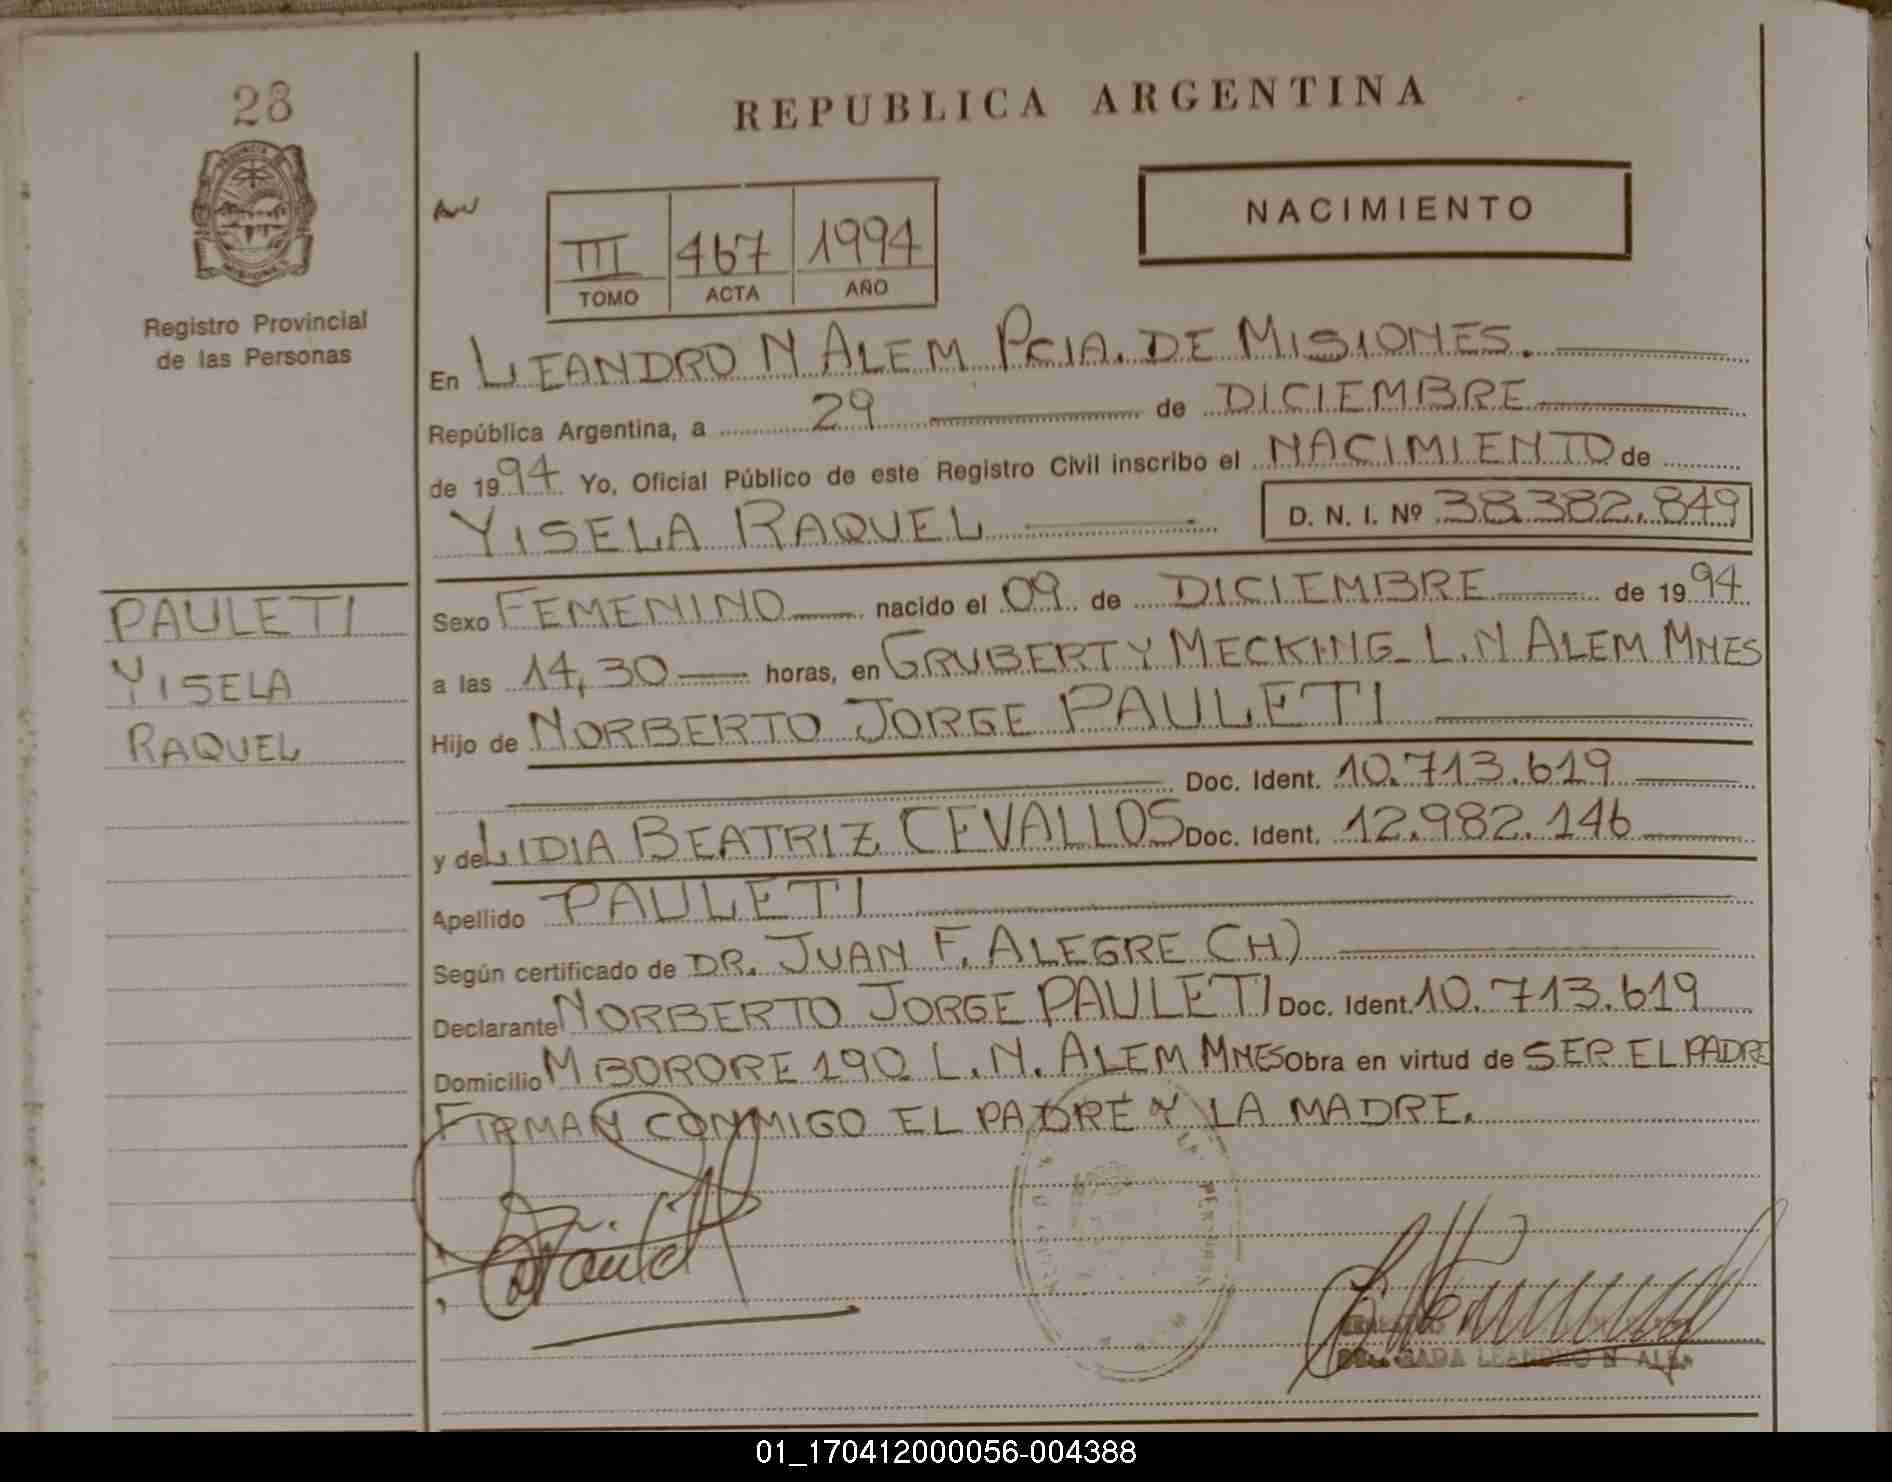 28
REPUBLICA ARGENTINA
PROVINCIA DE
MISIONES
Registro Provincial
de las Personas
III 467 1994
TOMO ACTA AÑO
NACIMIENTO
En LEANDRO N ALEM PCIA. DE MISIONES.
República Argentina, a 29 de DICIEMBRE
de 1994 Yo, Oficial Público de este Registro Civil inscribo el NACIMIENTO de
YISELA RAQUEL D. N. I. Nº 38.382.849
PAULETI
YISELA
RAQUEL
Sexo FEMENINO nacido el 09 de DICIEMBRE de 1994
a las 14,30 horas, en GRUBERT Y MECKING L.N ALEM MNES
Hijo de NORBERTO JORGE PAULETI
Doc. Ident. 10.713.619
y de LIDIA BEATRIZ CEVALLOS Doc. Ident. 12.982.146
Apellido PAULETI
Según certificado de DR. JUAN F. ALEGRE (H)
Declarante NORBERTO JORGE PAULETI Doc. Ident. 10.713.619
Domicilio M BORORE 190 L.N. ALEM MNES Obra en virtud de SER EL PADRE
FIRMAN CONMIGO EL PADRE Y LA MADRE.
LEANDRO N. ALEM
01_170412000056-004388